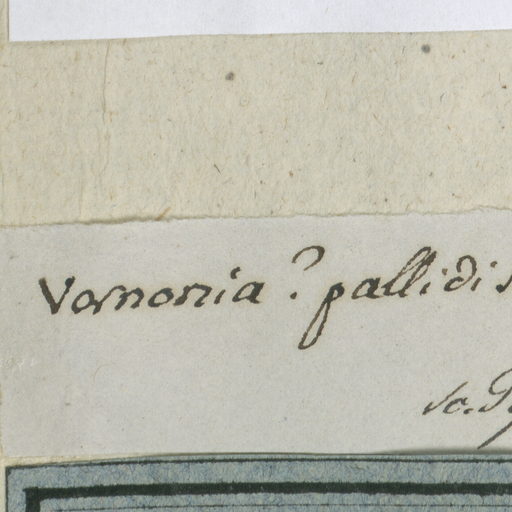 Vernonia? pallidis